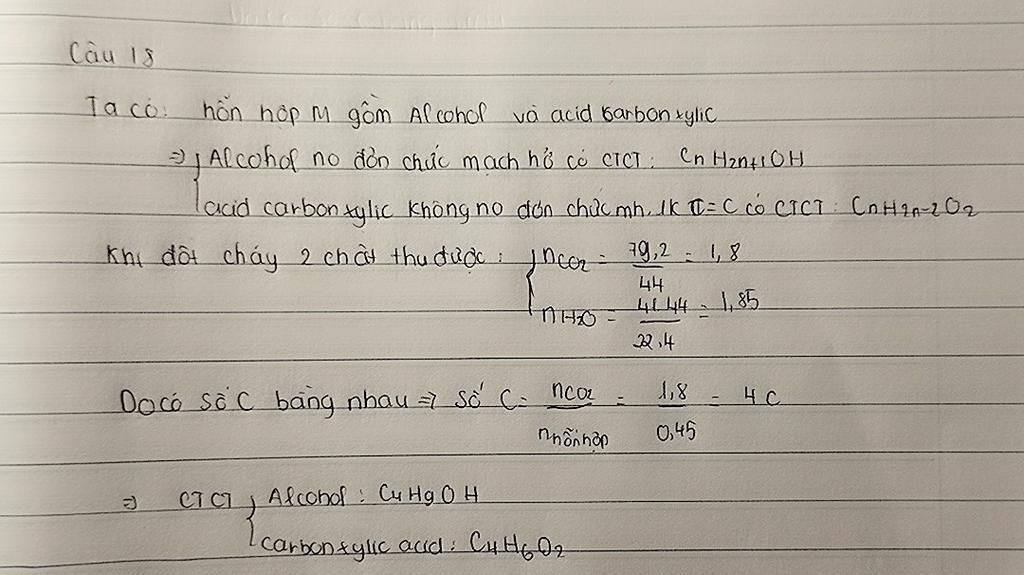 Câu 18
Ta có: hỗn hợp M gồm Alcohol và acid carbonxylic
⇒ { Alcohol no đơn chức mạch hở có CTCT: CnH2n+1OH
acid carbonxylic không no đơn chức mh, 1k C=C có CTCT: CnH2n-2O2
Khi đốt cháy 2 chất thu được: { nCO2 = 79,2/44 = 1,8
nH2O = 41.44/22.4 = 1,85
Do có số C bằng nhau ⇒ số C = nCO2/nhỗn hợp = 1,8/0,45 = 4C
⇒ CTCT { Alcohol: C4H9OH
carbonxylic acid: C4H6O2